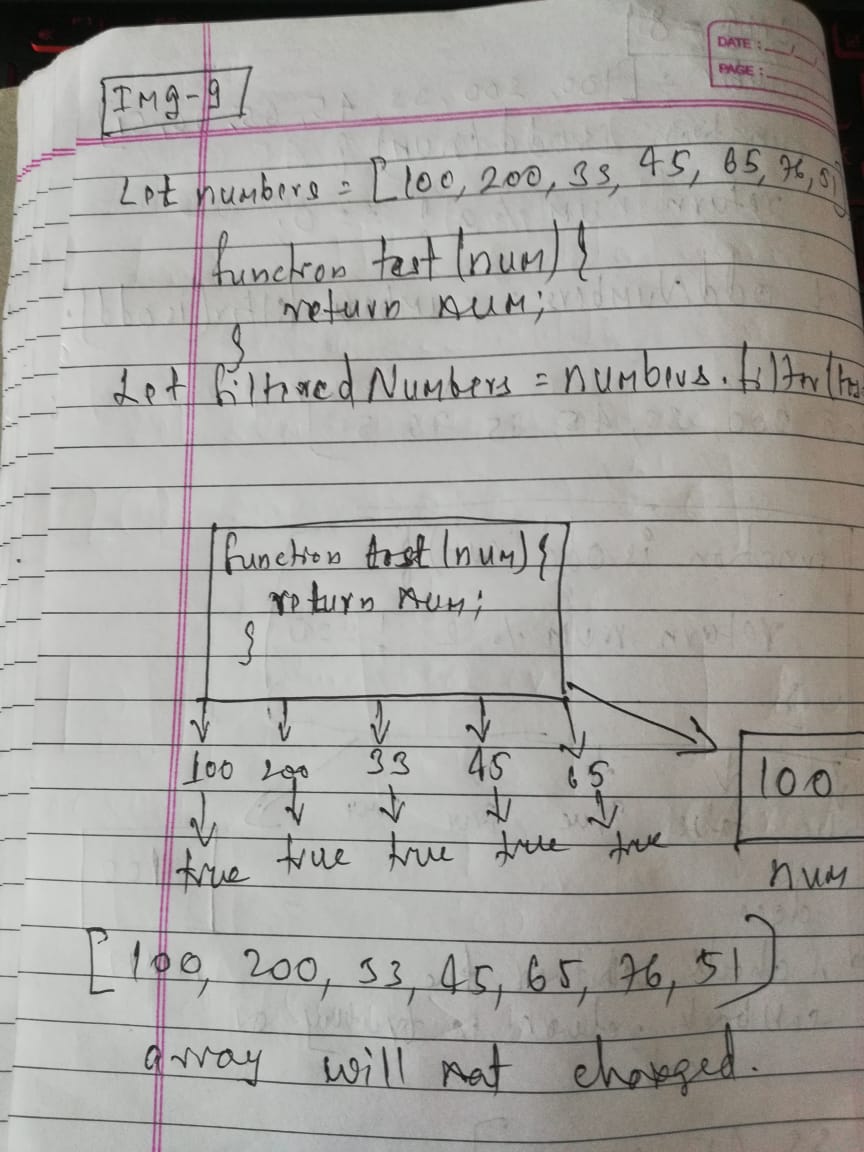 DATE :
PAGE :
IMg-9
Let numbers = [100, 200, 33, 45, 65, 76, 51
function test (num) {
return num;
}
Let filtered Numbers = numbers. filter (
function test (num) {
return num;
}
100 200 33 45 65
100
true true true true true
num
[100, 200, 33, 45, 65, 76, 51]
array will not changed.